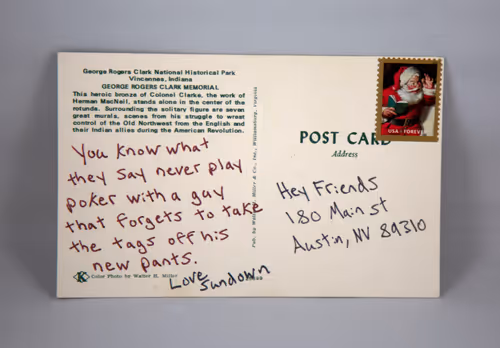 George Rogers Clark National Historical Park
Vincennes, Indiana
GEORGE ROGERS CLARK MEMORIAL
This heroic bronze of Colonel Clarke, the work of
Herman MacNeil, stands alone in the center of the
rotunda. Surrounding the solitary figure are seven
great murals, scenes from his struggle to wrest
control of the Old Northwest from the English and
their Indian allies during the American Revolution.
You know what
they say never play
poker with a guy
that forgets to take
the tags off his
new pants.
Love
Sundown
Color Photo by Walter H. Miller
Pub. by Walter H. Miller & Co., Inc., Williamsburg, Virginia
USA FOREVER
POST CARD
Address
Hey Friends
180 Main st
Austin, NV 89310